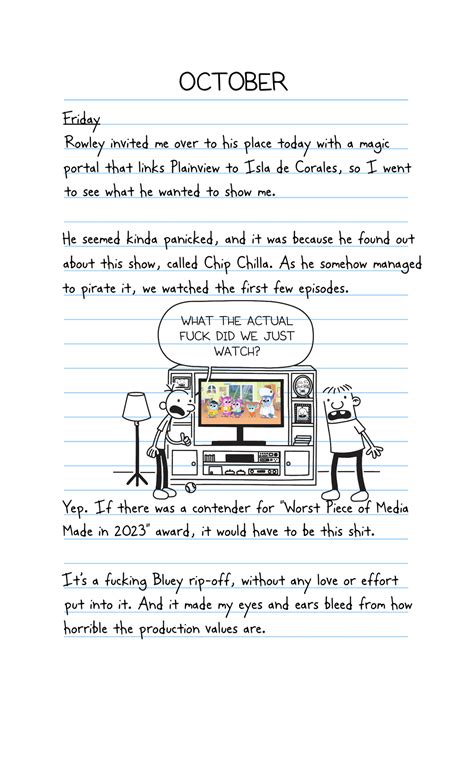 OCTOBER
Friday
Rowley invited me over to his place today with a magic
portal that links Plainview to Isla de Corales, so I went
to see what he wanted to show me.
He seemed kinda panicked, and it was because he found out
about this show, called Chip Chilla. As he somehow managed
to pirate it, we watched the first few episodes.
WHAT THE ACTUAL
FUCK DID WE JUST
WATCH?
Yep. If there was a contender for "Worst Piece of Media
Made in 2023" award, it would have to be this shit.
It's a fucking Bluey rip-off, without any love or effort
put into it. And it made my eyes and ears bleed from how
horrible the production values are.